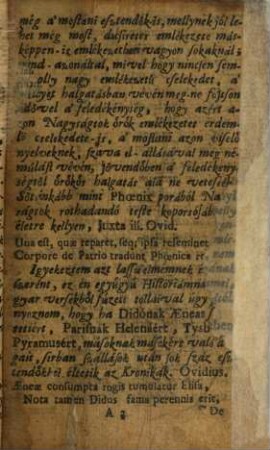 még a' mostani esztendõkis, mellynek jól le-
het még most, dusirteiei emlékezete más-
képpen-is emlékezetben vagyon sokaknál;
mind-azonáltal, mivel hogy nintsen sem-
olly nagy emlékezetü tselekedet, a'
hallgatásban vévén meg-ne fojtson
idõvel a' feledékénység, hogy azért a-
zon Nagyságtok örök emlékezetes érdem-
tselekedete-is, a' mostani azon viselõ
nyelveknek, szárva el-állásával meg né-
múlást vévén, jövendõben a' feledékeny-
ségtöl örökös halgatás alá ne vetesék
Söt inkább mint Phœnix porából Na-
ságtok rothadandó teste koporsójáb
életre kellyen, Juxta ill. Ovid.
Una est, quæ reparet, seq; ipsa reseminet
Corpore de Patrio tradunt Phœnica re-
Igyekeztem azt lassu elmémnek
szerént, ez én együgyü Historiámna
gyar versekböl füzött tollaival ugy
nyoznom, hogy ha Didónak Æneas
tetiért, Parisnak Helenáért, Tysb
Pyramusért, másoknak másokért való
pait, sirban szállások után sok száz esz
tendökkel éltetik az Kronikák. Ovidius.
Æneæ consumpta rogis tumulatur Elisa,
Nota tamen Didus fama perennis erit,
A 3 De